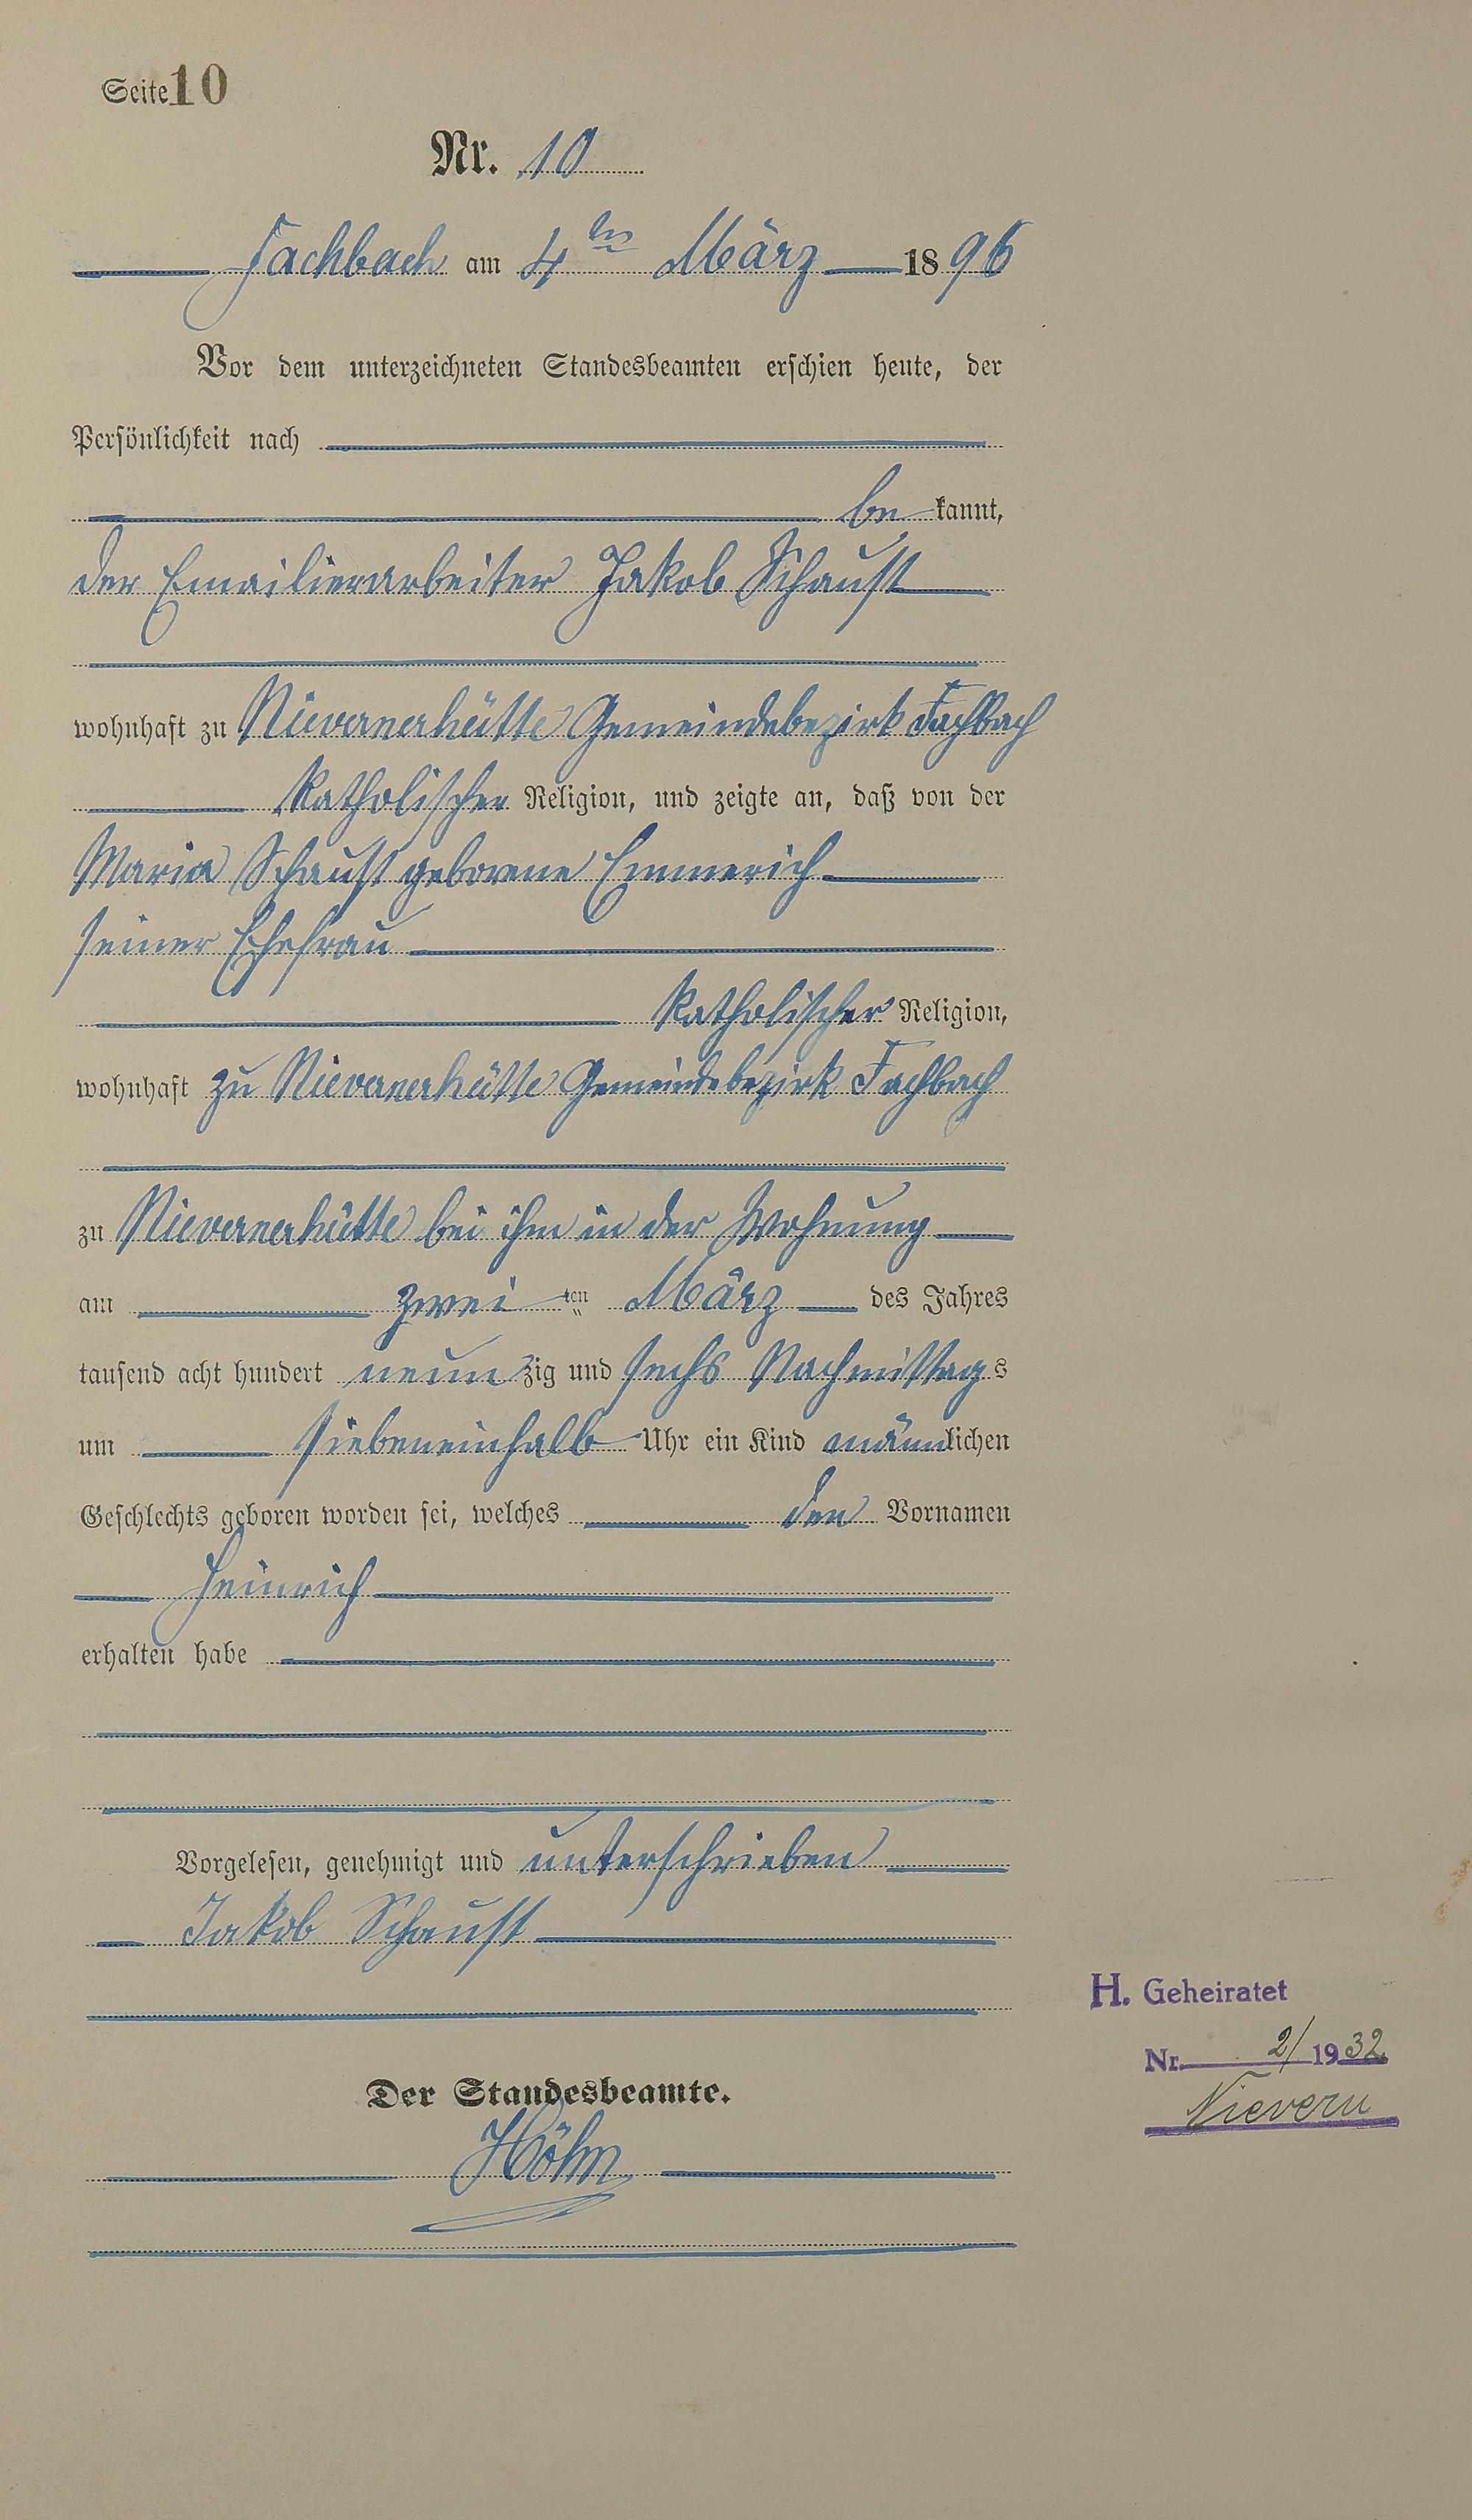 Seite 10
Nr. 10
Fachbach am 4ten März 1896
Vor dem unterzeichneten Standesbeamten erschien heute, der
Persönlichkeit nach
bekannt,
der Emailierarbeiter Jakob Schaust
wohnhaft zu Nievernerhütte Gemeindebezirk Fachbach
katholischer Religion, und zeigte an, daß von der
Maria Schaust geborene Emmerich
seiner Ehefrau
katholischer Religion,
wohnhaft zu Nievernerhütte Gemeindebezirk Fachbach
zu Nievernerhütte bei ihm in der Wohnung
am zweiten März des Jahres
tausend acht hundert neunzig und sechs Nachmittags
um siebeneinhalb Uhr ein Kind männlichen
Geschlechts geboren worden sei, welches den Vornamen
Heinrich
erhalten habe
Vorgelesen, genehmigt und unterschrieben
Jakob Schaust
Der Standesbeamte.
Höhn
H. Geheiratet
Nr. 2/1932
Nievern